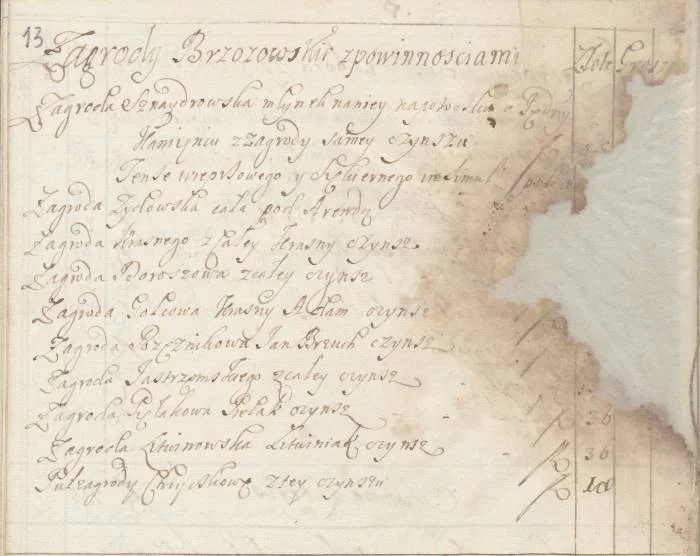 13
Zagrody Brzozowskie zpowinnosciami Złote Grosz
Zagroda Sznaydrowska młynek naniey napotocku o
Kamięniu zZagrody samey czynszu
Tense wieprzowego y in simul
Zagroda Zydowska cała pod Arendą
Zagroda Krasnego z całey Krasny czynsz
Zagroda Doroszowa zcałey czynsz
Zagroda Golcowa Krasny Adam czynsz
Zagroda Jan Brzuch czynsz
Zagroda Jastrzemskiego zcałey czynsz
Zagroda Pielakowa Pielak czynsz 36
Zagroda Litwinowska Litwiniak czynsz 36
Pułzagrody ztey czynszu 18